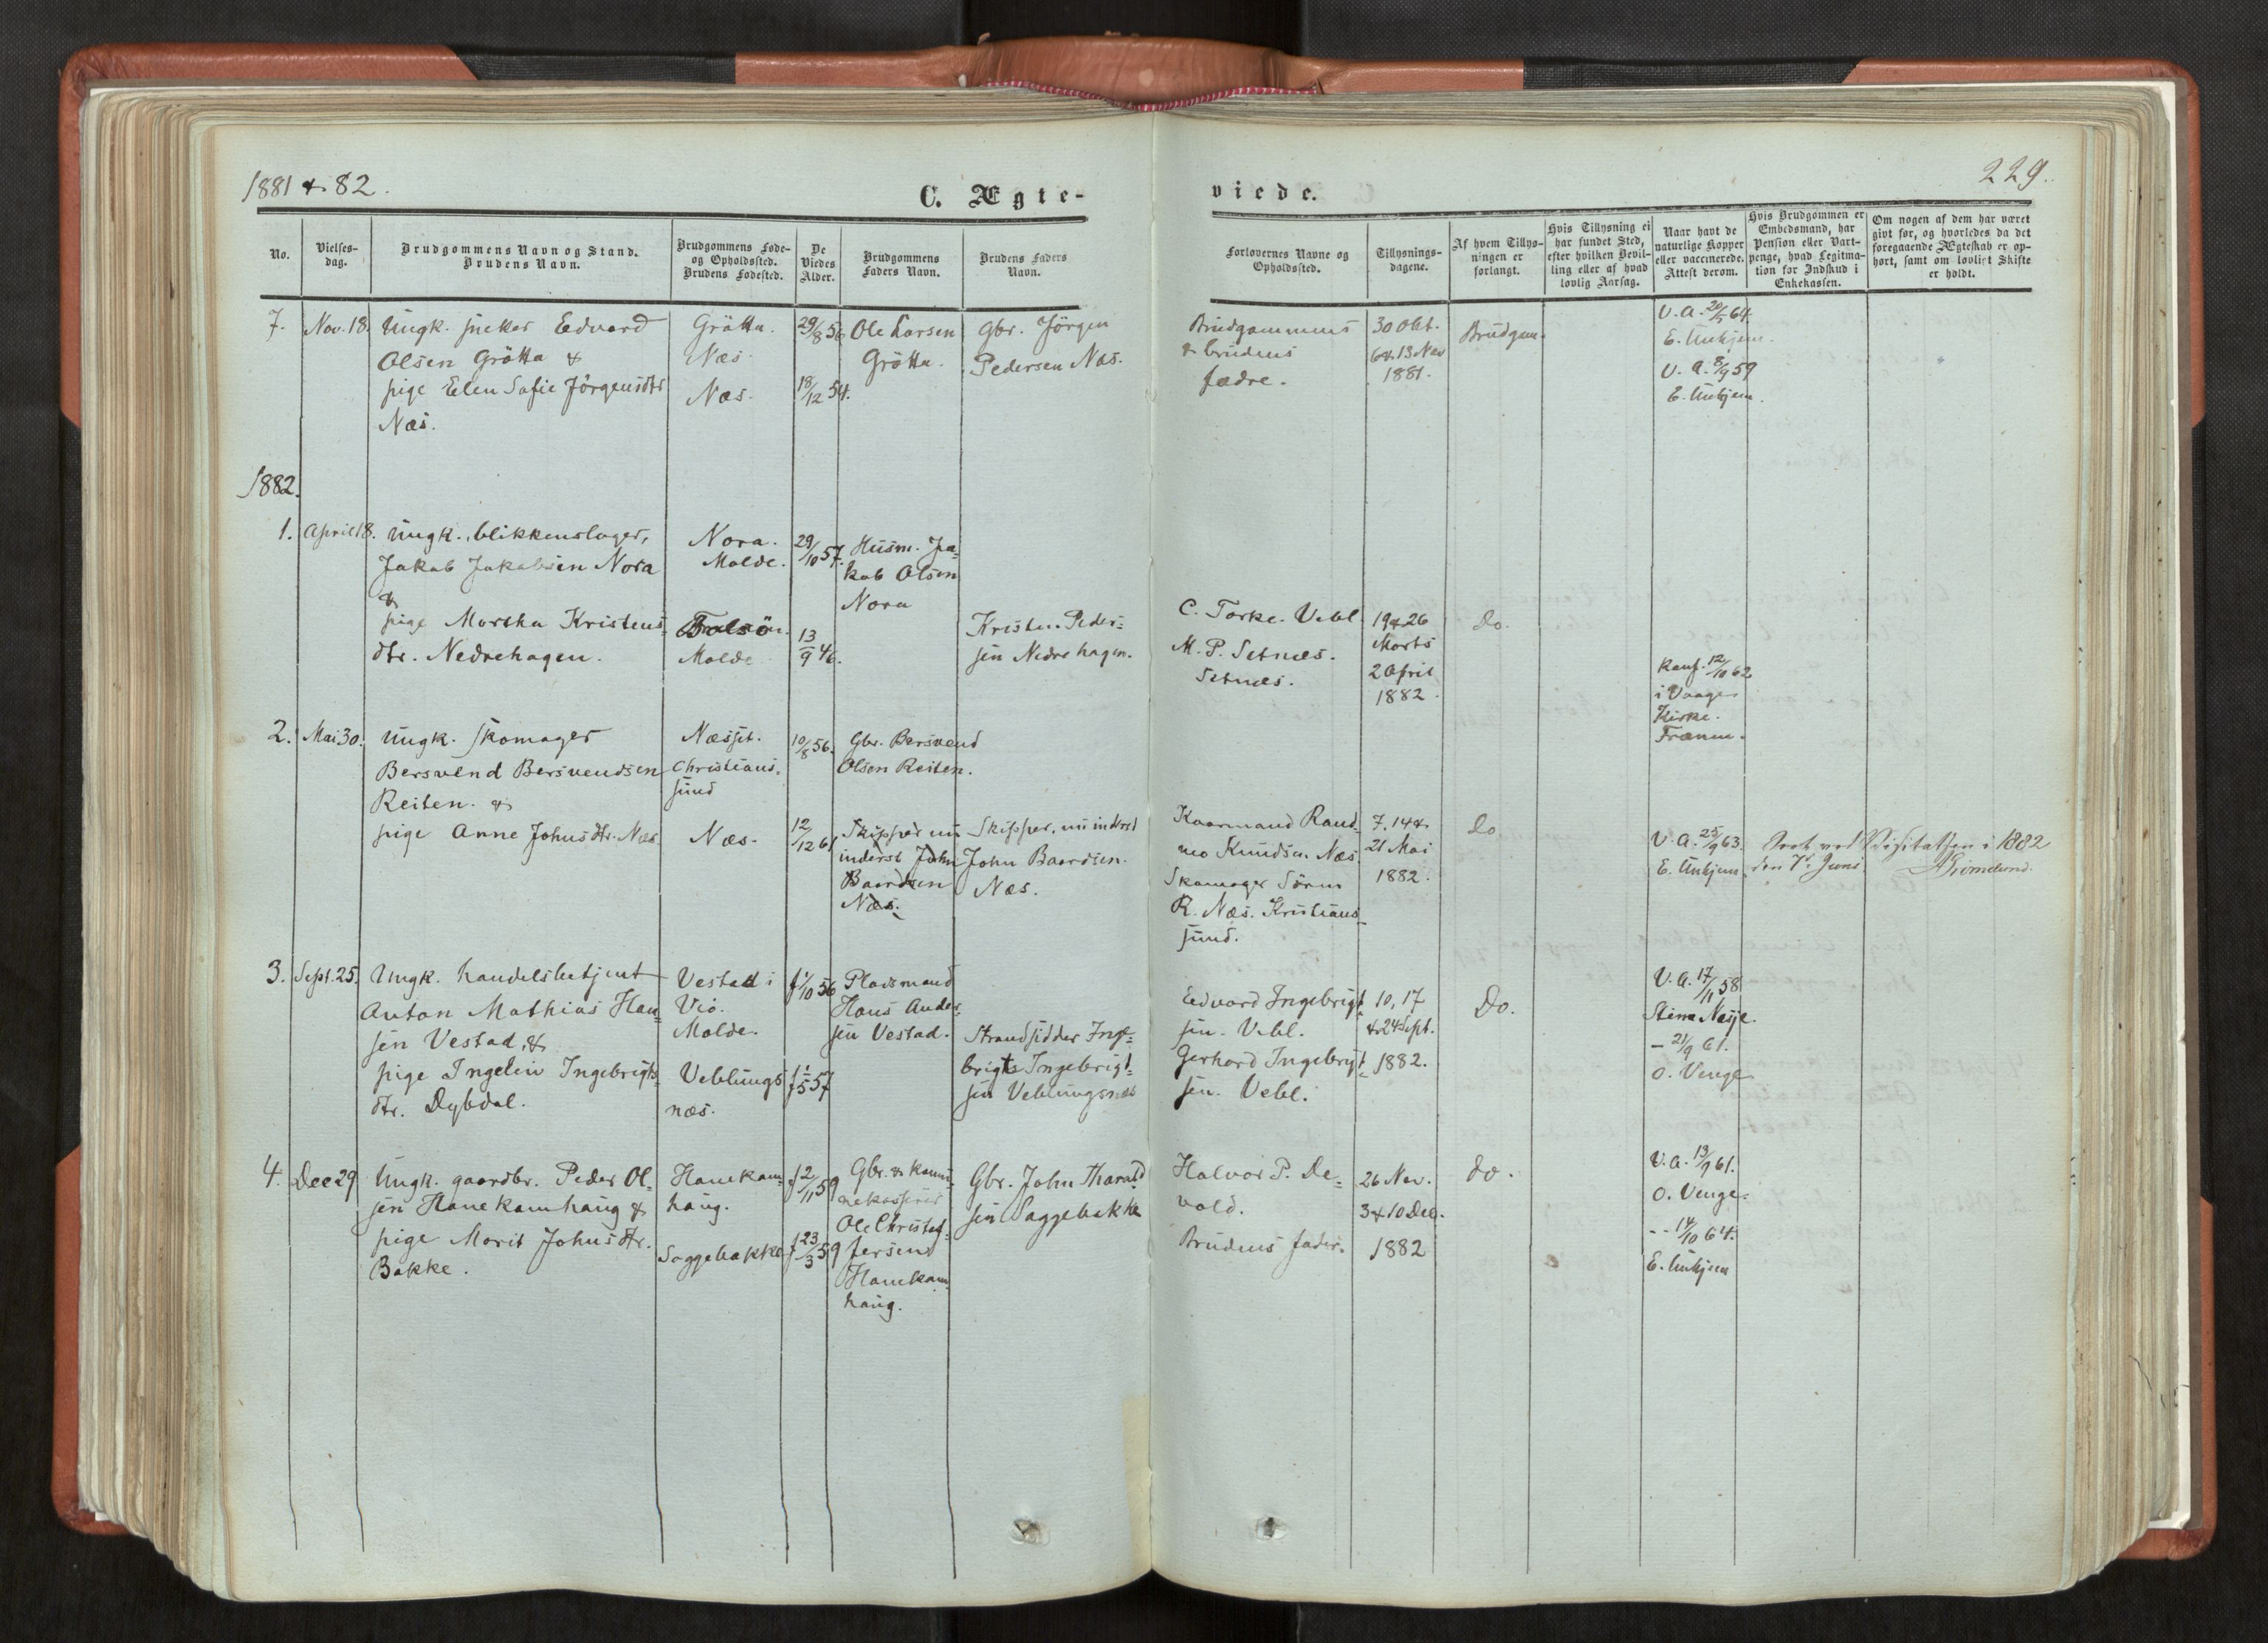 1881 & 82.
229.
C. Ægte-
viede.
No.
Vielses-
dag.
Brudgommens Navn og Stand.
Brudens Navn.
Brudgommens Føde-
og Opholdssted.
Brudens Fødested.
De
Viedes
Alder.
Brudgommens
Faders Navn.
Brudens Faders
Navn.
Forlovernes Navne og
Opholdssted.
Tillysnings-
dagene.
Af hvem Tillys-
ningen er
forlangt.
Hvis Tillysning ei
har fundet Sted,
efter hvilken Bevil-
ling eller af hvad
lovlig Aarsag.
Naar havt de
naturlige Kopper
eller vaccinerede.
Attest derom.
Hvis Brudgommen er
Embedsmand, har
Pension eller Vart-
penge, hvad Legitima-
tion for Indskud i
Enkekassen.
Om nogen af dem har været
givt før, og hvorledes da det
foregaaende Ægteskab er op-
hørt, samt om lovligt Skifte
er holdt.
7.
Nov. 18.
Ungk. Edvard
Olsen Grötta &
pige Elen Sofie Jörgensdtr
Næs.
Grötta.
Næs.
Næs.
29/8 56
18/12 54.
Ole Larsen
Grötta.
Gbr. Jörgen
Pedersen Næs.
Brudgommens
& brudens
fædre.
30 Okt.
6 & 13 Nov
1881.
Brudgom.
V. A. 20/5 64.
E. Unhjem.
V. A. 8/9 59
E. Unhjem.
1882.
1.
April 18.
Ungk., blikkenslager,
Jakob Jakobsen Nora
&
pige Martha Kristens-
dtr. Nedrehagen.
Nora.
Molde.
Bolsö.
Molde.
29/10 57.
13/9 46.
Husm. Ja-
kob Olsen
Nora
Kristen Peder-
sen Nedrehagen.
C. Torke. Vebl.
M. P. Setnæs.
Setnæs.
19 & 26
Marts
2 April
1882.
Do.
Konf. 12/10 62
i Vaage
Kirke.
Frænen.
2.
Mai 30.
Ungk. skomager
Bersvend Bersvendsen
Reiten. &
pige Anne Johnsdtr. Næs.
Næsset.
Christians-
sund
Næs.
10/8 56.
12/12 61
Gbr. Bersvend
Olsen Reiten.
Skipper nu
inderst John
Baardsen
Næs.
Skipper, nu inderst
John Baardsen.
Næs.
Kaarmand Rand-
mo Knudsen Næs.
Skomager Sören
R. Næs. Kristians-
sund.
7. 14 &
21 Mai
1882.
Do
V. A. 25/9 63.
E. Unhjem
Seet ved Visitatsen i 1882
den 7d. Juni.
3.
Sept. 25.
Ungk. handelsbetjent
Anton Mathias Han-
sen Vestad, &
pige Ingelin Ingebrigts-
dtr. Dybdal.
Vestad i
Viö.
Molde.
Veblungs-
næs.
f 1/10 56
f 1/5 57
Pladsmand
Hans Ander-
sen Vestad.
Strandsidder Inge-
brigt Ingebrigt-
sen Veblungsnæs
Edvard Ingebrigt-
sen. Vebl.
Gerhard Ingebrigt-
sen. Vebl.
10, 17
& 24 Sept.
1882.
Do.
V. A. 17/11 58
Stine Nesje.
- 21/9 61.
O. Venge
4.
Dec 29
Ungk. gaardbr. Peder Ol-
sen Hanekamhaug &
pige Marit Johnsdtr.
Bakke.
Hanekam-
haug.
Soggebakke
f 2/11 59
f 23/3 59
Gbr. & kom-
Ole Christof-
fersen
Hanekam-
haug.
Gbr. John Tharald-
sen Soggebakke
Halvor P. De-
vold.
Brudens fader.
26 Nov.
3 & 10 Dec.
1882
do.
V. A. 13/9 61.
O. Venge.
- - 14/10 64.
E. Unhjem